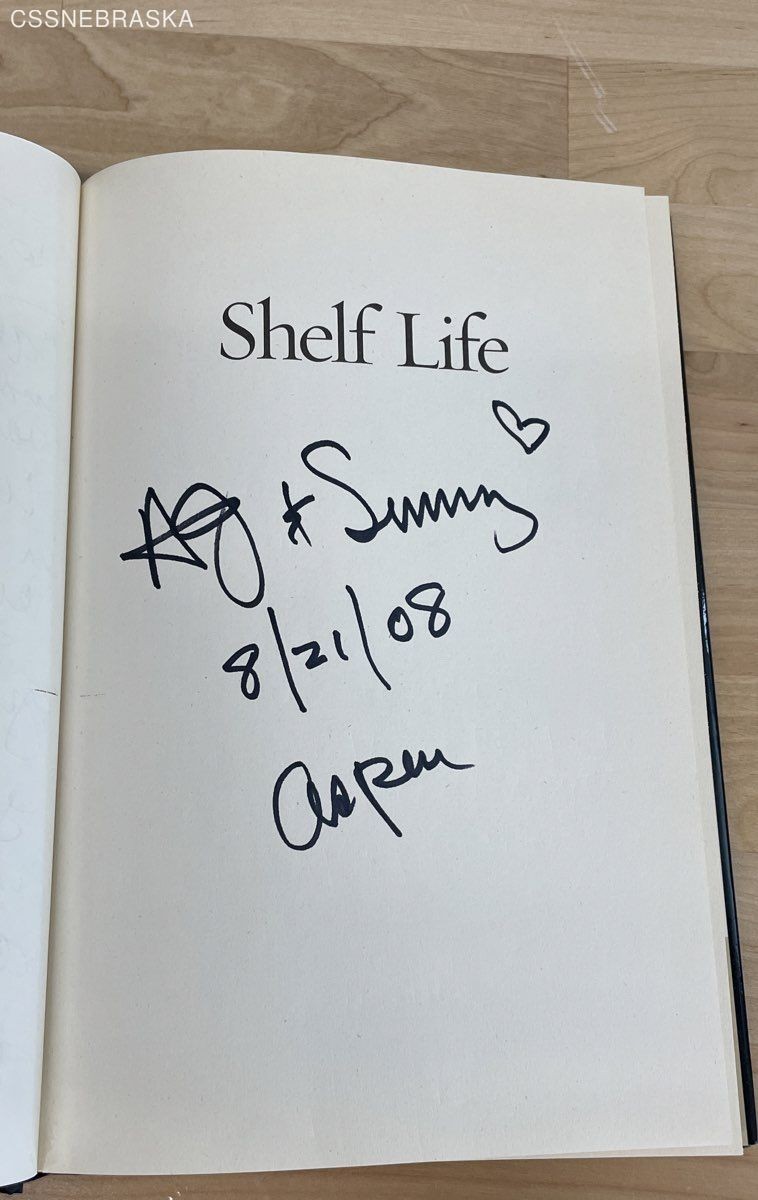 CSSNEBRASKA
Shelf Life
AJ & Sunny
8/21/08
Aspen